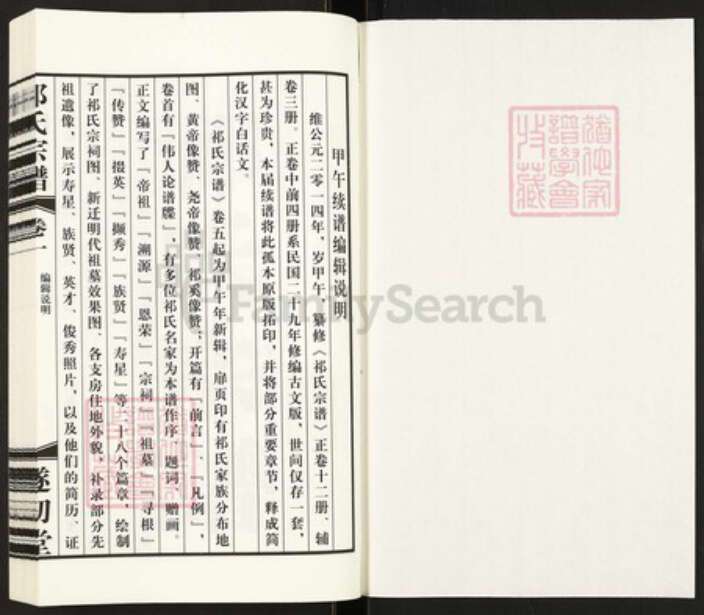 甲午续谱编辑说明
维公元二零一四年，岁甲午，纂修《祁氏宗谱》正卷十二册、辅
卷三册。正卷中前四册系民国二十九年修编古文版，世间仅存一套，
甚为珍贵，本届续谱将此孤本原版拓印，并将部分重要章节，释成简
化汉字白话文。
《祁氏宗谱》卷五起为甲午年新辑，扉页印有祁氏家族分布地
图、黄帝像赞、尧帝像赞、祁奚像赞；开篇有『前言』、『凡例』，
卷首有『伟人论谱牒』，有多位祁氏名家为本谱作序、题词、赠画。
正文编写了『帝祖』『溯源』『恩荣』『宗祠』『祖墓』『寻根』
『传赞』『掇英』『撷秀』『族贤』『寿星』等二十八个篇章，绘制
了祁氏宗祠图、新迁明代祖墓效果图、各支房住地外貌，补录部分先
祖遗像，展示寿星、族贤、英才、俊秀照片，以及他们的简历、证
祁氏宗谱
卷一
编辑说明
遂初堂
FamilySearch